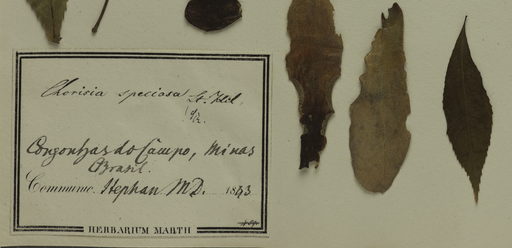 Chorisia speciosa St. Hil.
Congonhas do Campo, Minas
Brasil.
Communic. Stephan MD. 1843
HERBARIUM MARTII